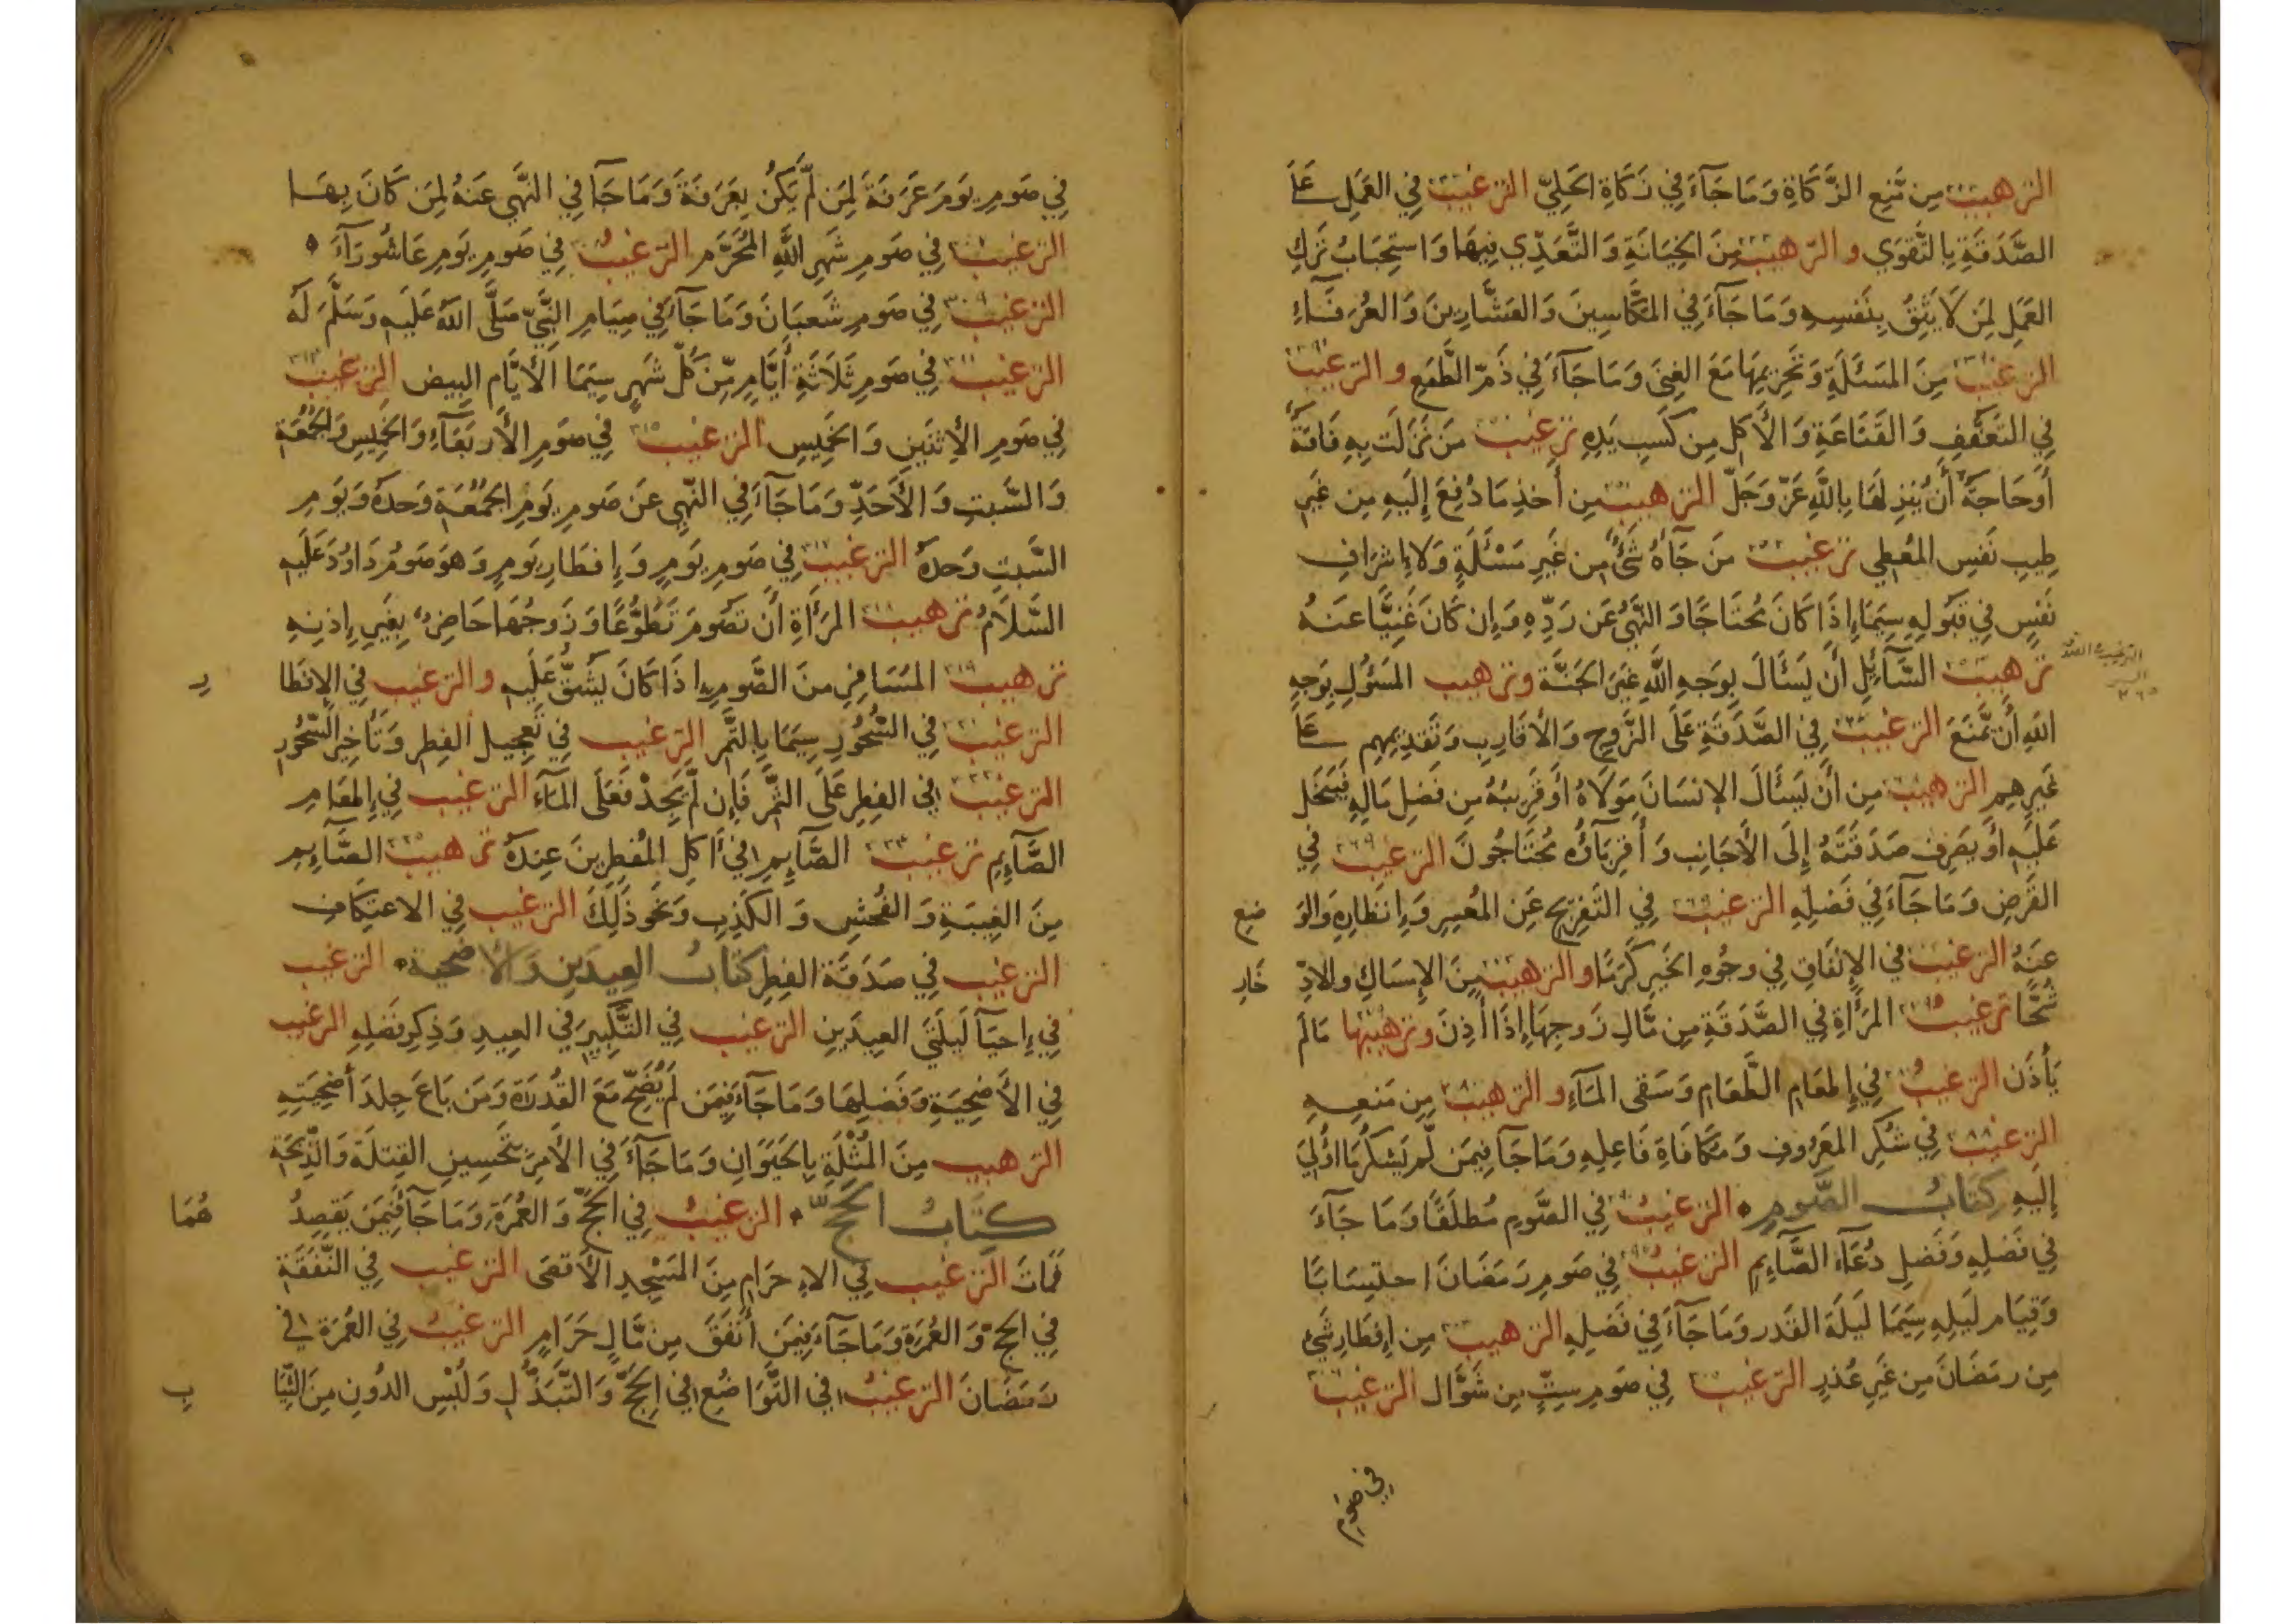 الترهيب من مَّنعِ الزَّكَاةِ وَمَا جَآءَ فِي زَكَاةِ الحُلِيِّ الترغيب فِي العَمَلِ عَلَى
الصَّدَقَةِ بِالتَّقوَي والترهيب مِنَ الخِيَانَةِ وَالتَّعَدِّي فِيهَا وَاستِحبَابُ تَركِ
العَمَلِ لِمَن لَّا يَثِقُ بِنَفسِهِ وَمَا جَآءَ فِي المَكَّاسِينَ وَالعَشَّارِينَ وَالعُرَفَآءِ
الترغيب مِنَ المَسئَلَةِ وَتَحرِيمِهَا مَعَ الغِنَى وَمَا جَآءَ فِي ذَمِّ الطَّمَعِ والترغيب
فِي التَّعَفُّفِ وَالقَنَاعَةِ وَالأَكلِ مِن كَسبِ يَدِهِ ترغيب مَن نَزَلَت بِهِ فَاقَةٌ
أَو حَاجَةٌ أَن يُنزِلَهَا بِاللَّهِ عَزَّ وَجَلَّ الترهيب مِن أَخذِ مَا دُفِعَ إِلَيهِ مِن غَيرِ
طِيبِ نَفسِ المُعطِي ترغيب مَن جَآءَهُ شَيءٌ مِن غَيرِ مَسْئَلَةٍ وَلَا إِشرَافِ
نَفسٍ فِي قَبُولِهِ سِيَمَا إِذَا كَانَ مُحتَاجًا وَالنَّهيُ عَن رَدِّهِ وَإِن كَانَ غَنِيًّا عَنهُ
ترهيب السَّآئِلِ أَن يَسئَالَ بِوَجهِ اللَّهِ غَيرَ الجَنَّةِ وترهيب المَسئُولِ بِوَجهِ
اللهِ أَن يَّمنَعَ الترغيب فِي الصَّدَقَةِ عَلَى الزَّوجِ وَالأَقَارِبِ وَتَقدِيمِهِم عَلَى
غَيرِهِم الترهيب مِن أَن يَسئَالَ الإِنسَانَ مَولَاهُ أَو قَرِيبُهُ مِن فَضلِ مَالِهِ فَيَبخَلَ
عَلَيهِ أَو يَصرِفَ صَدَقَتَهُ إِلَى الأَجَانِبِ وَأَقرِبَاؤُهُ مُحتَاجُونَ الترغيب ٢٦٩ فِي
القَرضِ وَمَا جَآءَ فِي فَضلِهِ الترغيب فِي التَّفرِيجِ عَنِ المُعسِرِ وَإِنظَارِهِ وَالوَ ضعِ
عَنهُ الترغيب فِي الإِنفَاقِ فِي وجُوهِ الخَيرِ كَرَمًا والترهيب مِنَ الإِمسَاكِ والادِّ خَارِ
شُحًّا ترغيب المَرأَةِ فِي الصَّدَقَةِ مِن مَّالِ زَوجِهَا إِذَا أَذِنَ وترهيبها مَا لَم
يَأذَن الترغيبُ فِي إِطعَامِ الطَّعَامِ وَسَقى المَآءِ والترهيب مِن مَنعِهِ
الترغيب فِي شُكرِ المَعرُوفِ وَمُكَافَاةِ فَاعِلِهِ وَمَا جَآ فِيمَن لَّم يَشكُر مَا أُولِيَ
إِلَيهِ كِتَابُ الصَّومِ الترغيبُ فِي الصَّومِ مُطلَقًا وَمَا جَآءَ
فِي فَضلِهِ وَفَضلِ دُعَآءِ الصَّآئِمِ الترغيبُ فِي صَومِ رَمَضَانَ احتِسَابًا
وَقِيَامِ لَيلِهِ سِيَمَا لَيلَةَ القَدرِ وَمَا جَآءَ فِي فَضلِهِ الترهيب مِن إِفطَارِ شَيءٍ
مِن رمَضَانَ مِن غَيرِ عُذرٍ الترغيب فِي صَومِ سِتٍّ مِن شَوَّال الترغيب
في صَومِ
فِي صَومِ يَومَ عَرَفَةَ لِمَن لَّم يَكُن بِعَرَفَةَ وَمَا جَآ فِي النَّهي عَنهُ لِمَن كَانَ بِهَا
الترغيب فِي صَومِ شَهرِ اللَّهِ المُحَرَّمِ الترغيبُ فِي صَومِ يَومِ عَاشُورَآءَ
الترغيب ٣٠٩ فِي صَومِ شَعبَانَ وَمَا جَآءَ فِي صِيَامِ النَّبِيِّ صَلَّى اللهُ عَلَيهِ وَسَلَّمَ لَهُ
الترغيب فِي صَومِ ثَلَاثَةِ أَيَّامٍ مِّن كُلِّ شَهرٍ سِيَمَا الأَيَّامِ البِيضِ الترغيب
فِي صَومِ الإِثنَينِ وَالخَمِيسِ الترغيب ٣١٥ فِي صَومِ الأَربَعَآءِ وَالخَمِيسِ وَالجُمُعَةِ
وَالسَّبتِ وَالأَحَدِ وَمَا جَآءَ فِي النَّهيِ عَن صَومِ يَومِ الجُمُعَةِ وَحدَهُ وَيَومِ
السَّبتِ وَحدَهُ الترغيب فِي صَومِ يَومٍ وَإِفطَارِ يَومٍ وَهوَ صَومُ دَاوُدَ عَلَيهِ
السَّلَامُ ترهيب المَرَأةِ أَن تَصُومَ تَطَوُّعًا وَزَوجُهَا حَاضِرٌ بِغَيرِ إِذنِهِ
ترهيب المُسَافِرِ مِنَ الصَّومِ إذَا كَانَ يَشُقُّ عَلَيهِ والترغيب فِي الإِفطَا رِ
الترغيب فِي السُّحُورِ سِيَمَا بِالتَّمرِ الترغيب فِي تَعجِيلِ الفِطرِ وَتَأخِيرِ السَّحُورِ
الترغيب فِي الفِطرِ عَلَى التَّمرِ فَإِن لَّم يَجِدْ فَعَلَى المَآءِ الترغيب فِي إِطعَامِ
الصَّآئِمِ ترغيب الصَّآئِمِ فِي أَكلِ المُفطِرِينَ عِندَهُ ترهيب الصَّآئِمِ
مِنَ الغِيبَةِ وَالفُحشِ وَالكَذِبِ وَنَحوِ ذَلِكَ الترغيب فِي الاعتِكَافِ
الترغيب فِي صَدَقَةِ الفِطرِ كتَابُ العِيدَينِ وَالأضحية الترغيب
فِي إِحيَآ لَيلَتَيِ العِيدَينِ الترغيب فِي التَّكبِيرِ فِي العِيدِ وَذِكرِ فَضلِهِ الترغيب
فِي الأُضحِيَةِ وَفَضلِهَا وَمَا جَآءَ فِيمَن لَم يُضَحِّ مَعَ القُدرَةِ وَمَن بَاعَ جِلدَ أُضحِيَتِهِ
الترهيب مِنَ المُثْلَةِ بِالحَيَوَانِ وَمَا جَآءَ فِي الأَمرِ بِتَحسِينِ القِتلَةِ وَالذِّبحَةِ
كِتَابُ الحَجِّ الترغيبُ فِي الحَجِّ وَالعُمرَةِ وَمَا جَآ فِيمَن يَقصِدُ هُمَا
فَمَاتَ الترغيب فِي الإحرَامِ مِنَ المَسْجِدِ الأَقصَى الترغيب فِي النَّفَقَةِ
فِي الحَجِّ وَالعُمرَةِ وَمَا جَآءَ فِيمَن أَنفَقَ مِن مَّالٍ حَرَامٍ الترغيبُ فِي العُمرَةِ في
رَمَضَانَ الترغيبُ فِي التَّوَاضُعِ فِي الحَجِّ وَالتَّبَذُّلِ وَلُبْسِ الدُونِ مِنَ الثِّيَا بِ